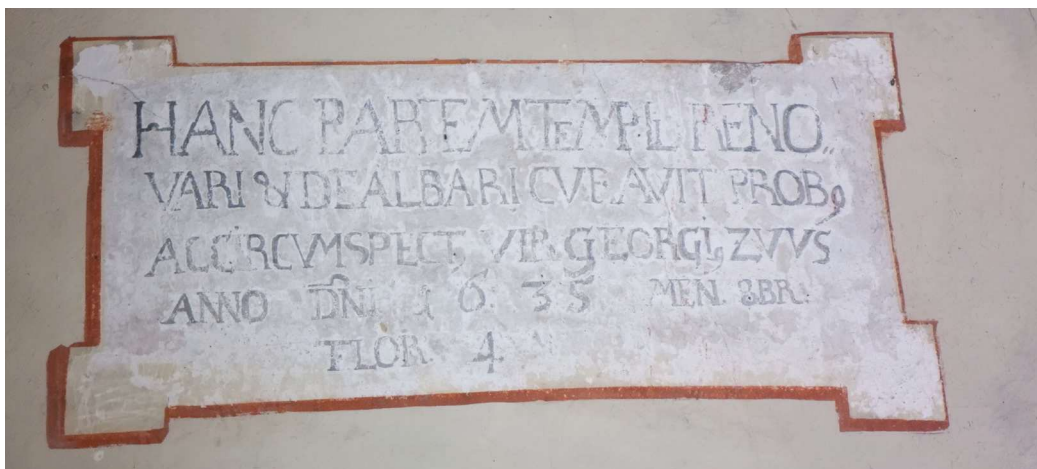 HANC PARTEM TEMPLI RENO„
VARI & DEALBARI CVRAVIT PROBꝰ
AC CIRCVMSPECTꝰ VIR GEORGIꝰ ZVVS
ANNO DÑI 1635 MEN. 8BR.
FLOR 4